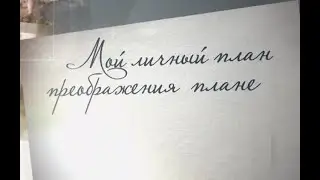 Мой личный план
преображения плане